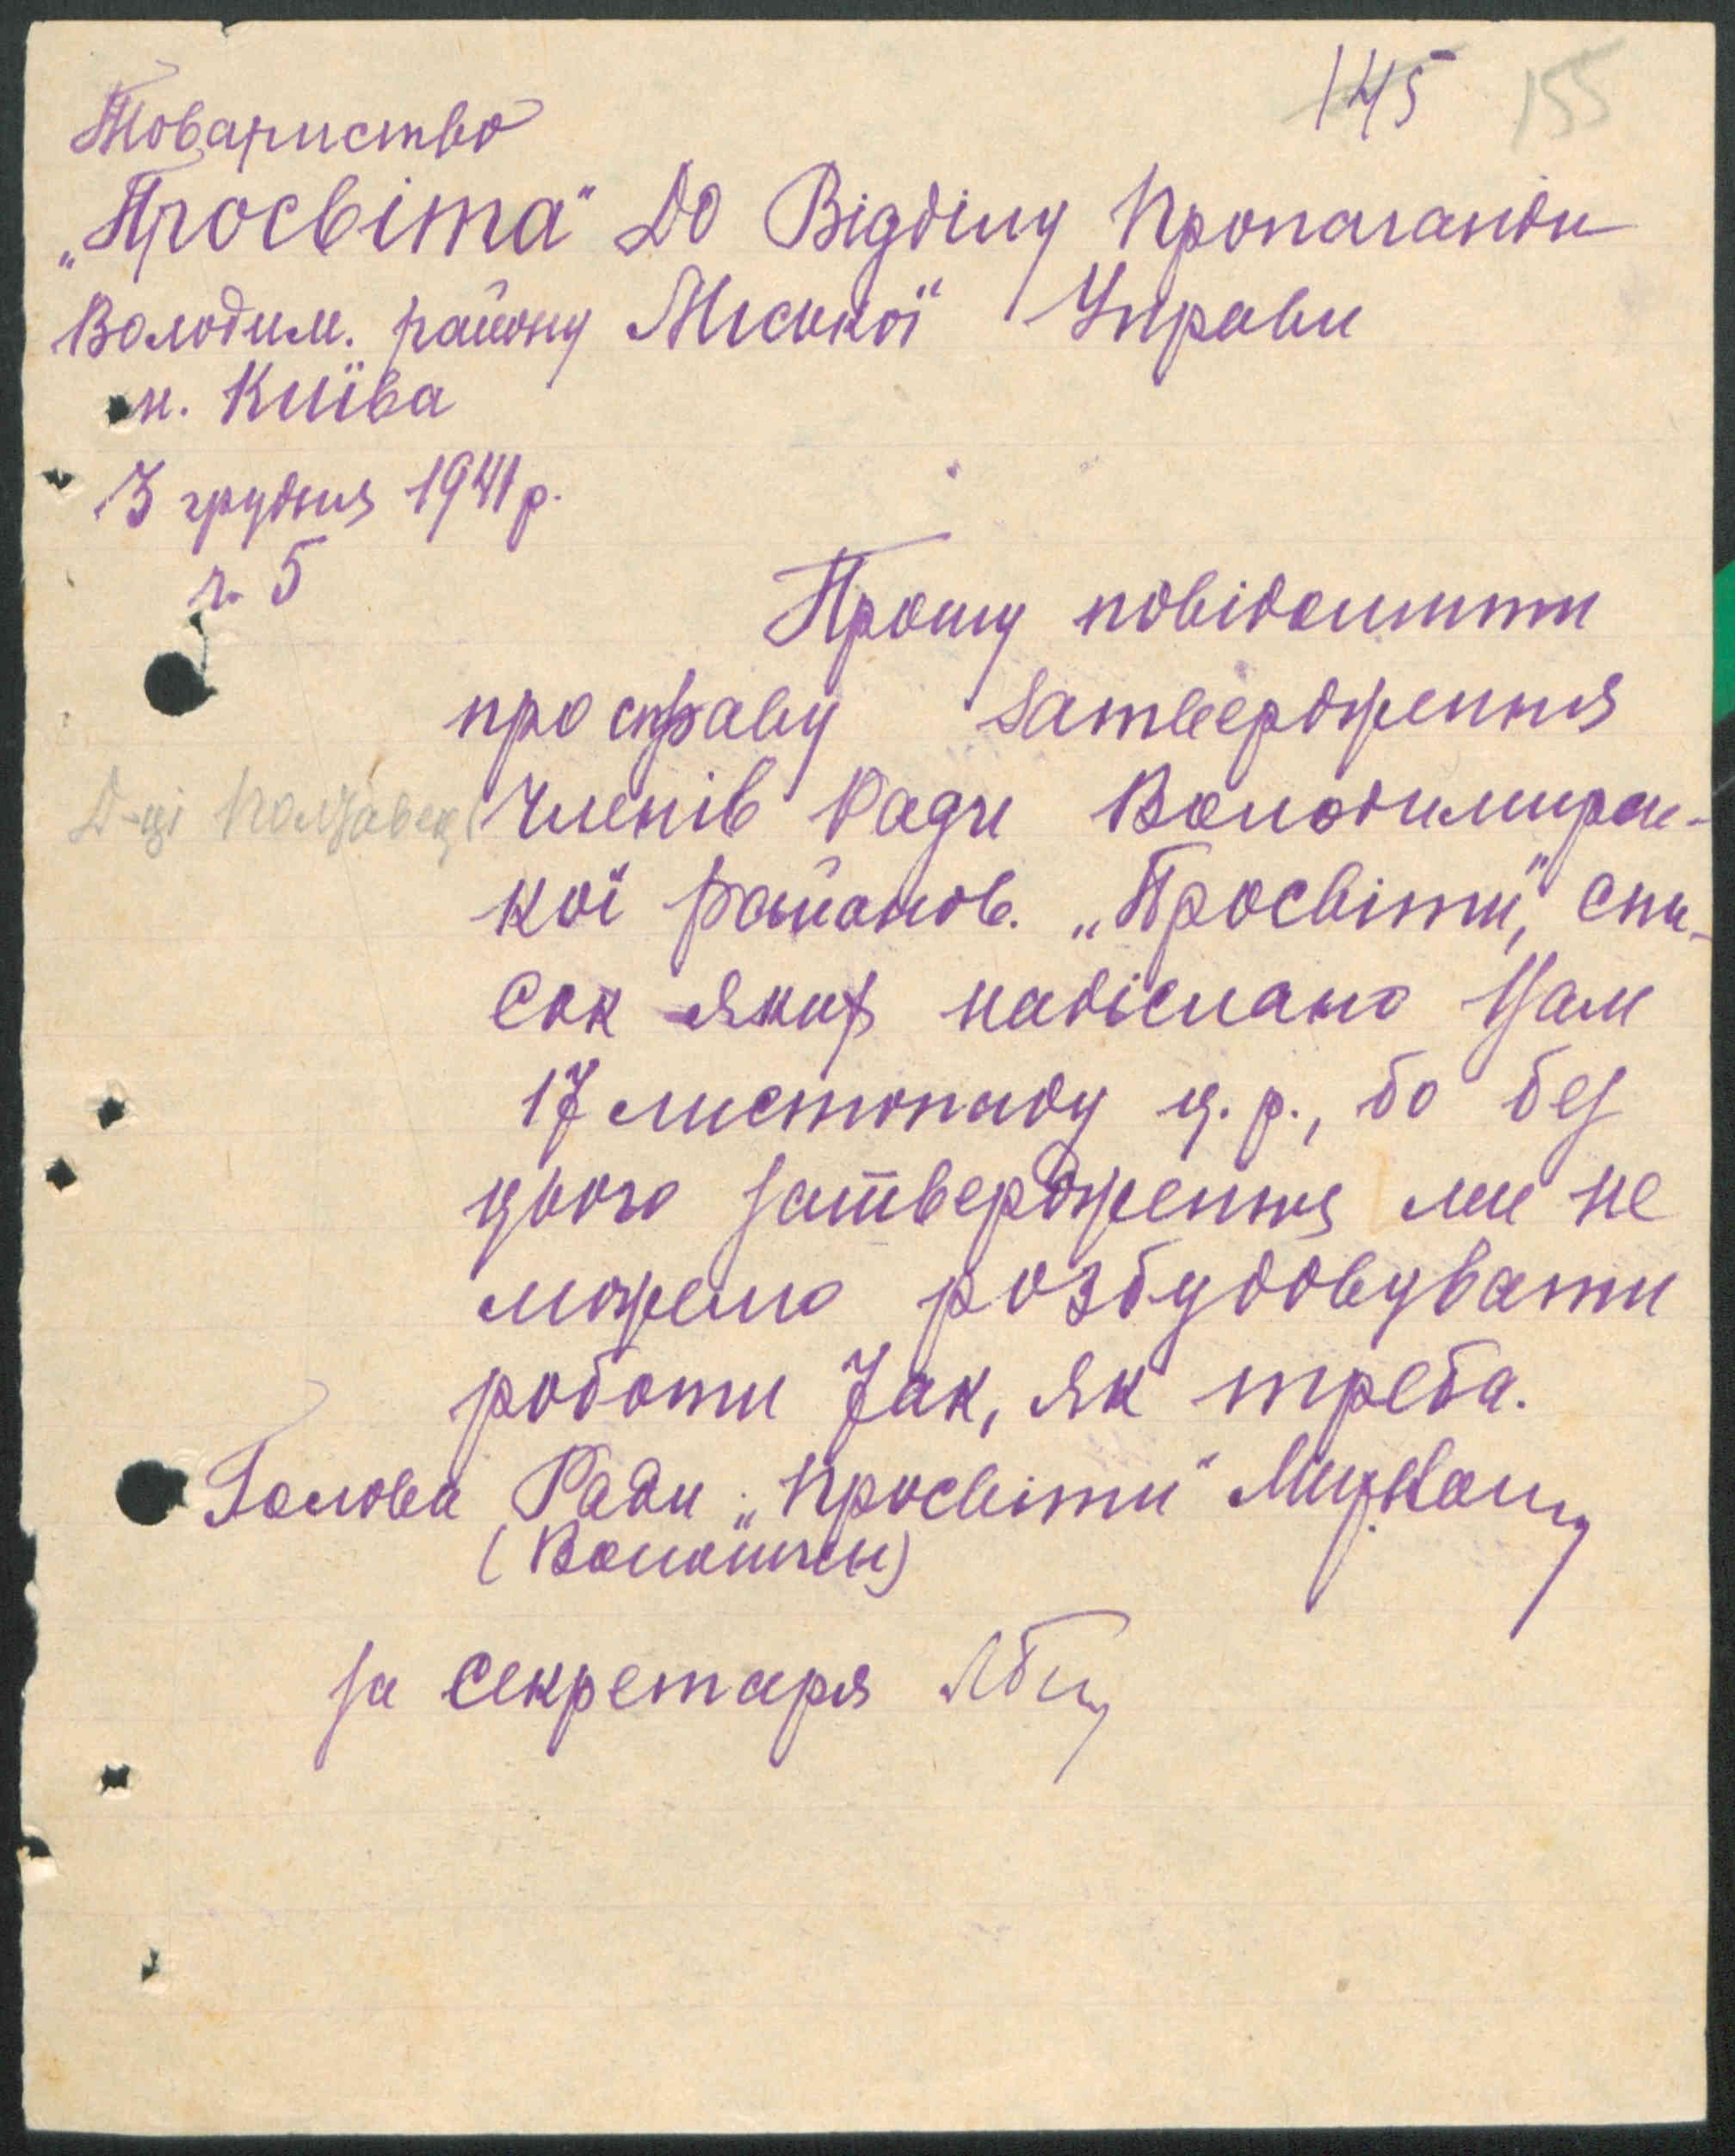 145 155
Товариство
„Просвіта" До Відділу Пропаганди
Володим. району Міської Управи
м. Київа
3 грудня 1941 р.
ч. 5
Прошу повідомити
про справу затвердження
членів Ради Володимирсь-
кої районов. „Просвіти", спи-
сок яких надіслано Вам
17 листопаду ц. р., бо без
цього затвердження ми не
можемо розбудовувати
роботи так, як треба.
Голова Ради „Просвіти"
(Волошин)
за секретаря